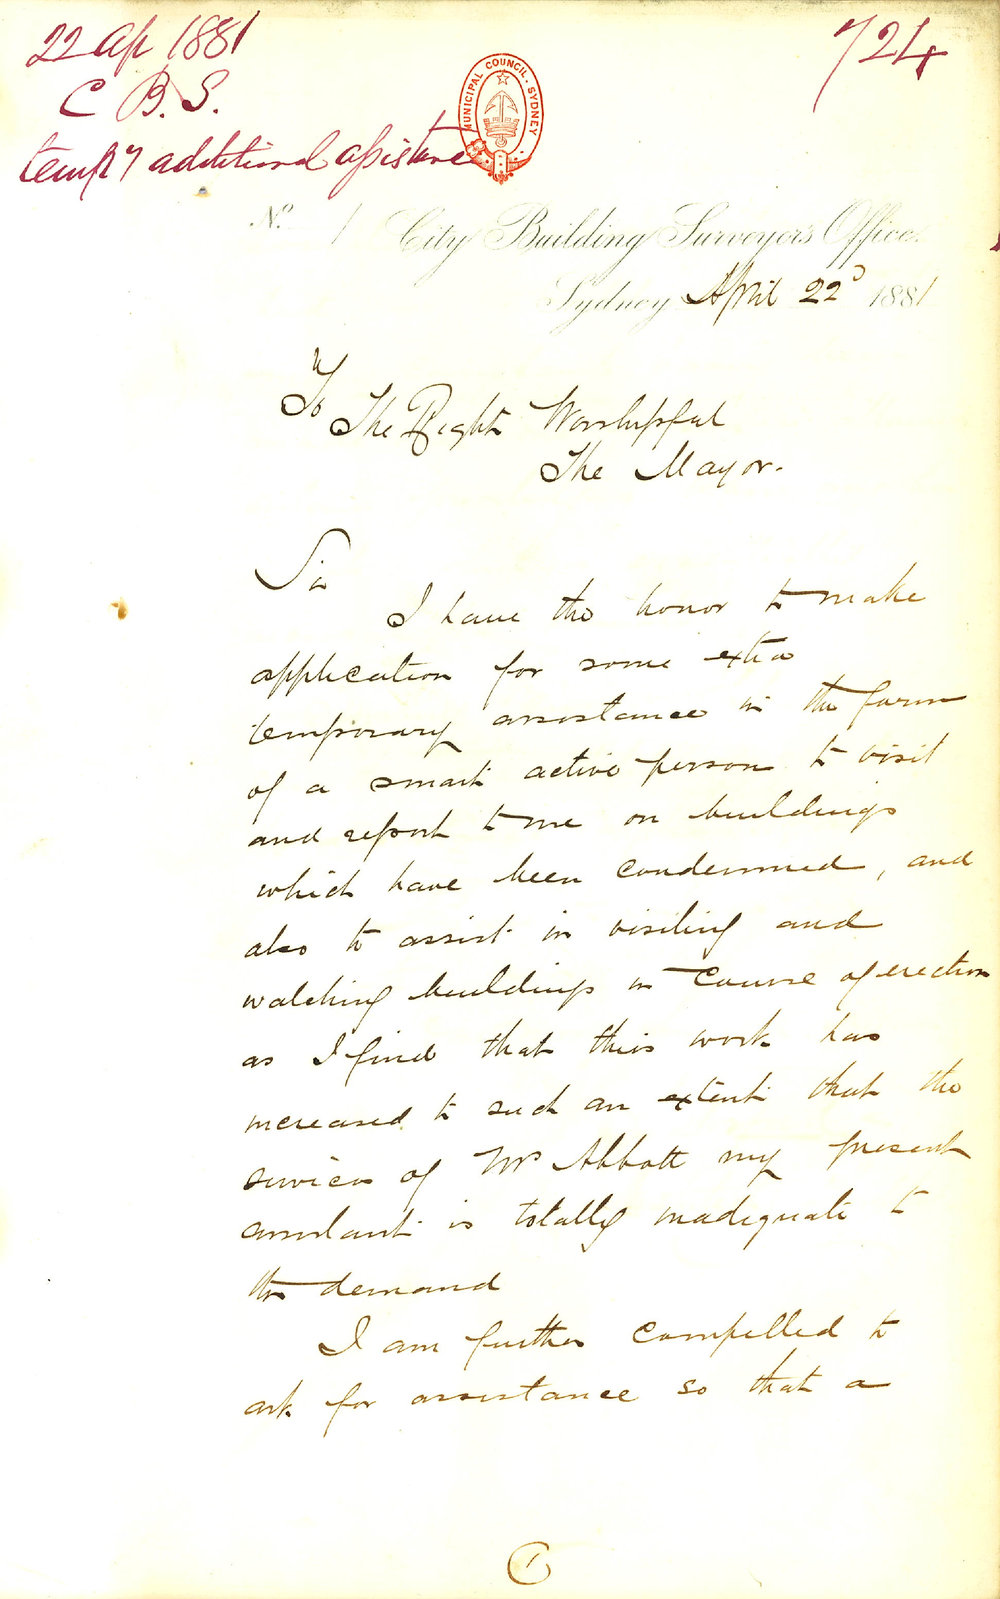 22 Ap 1881
724
C B. S.
temp'y additional assistance
MUNICIPAL COUNCIL · SYDNEY
No. 1 City Building Surveyor's Office.
Sydney April 22d 1881
To
The Right Worshipful
The Mayor.
Sir
I have the honor to make
application for some extra
temporary assistance in the form
of a smart active person to visit
and report to me on buildings
which have been condemned, and
also to assist in visiting and
watching buildings in course of erection
as I find that this work has
increased to such an extent that the
services of Mr Abbott my present
assistant is totally inadequate to
the demand
I am further compelled to
ask for assistance so that a
1